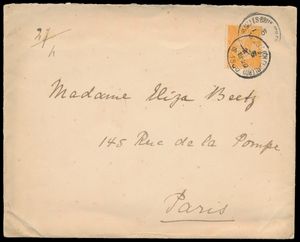 Madame Eliza Beetz
145 Rue de la Pompe
Paris